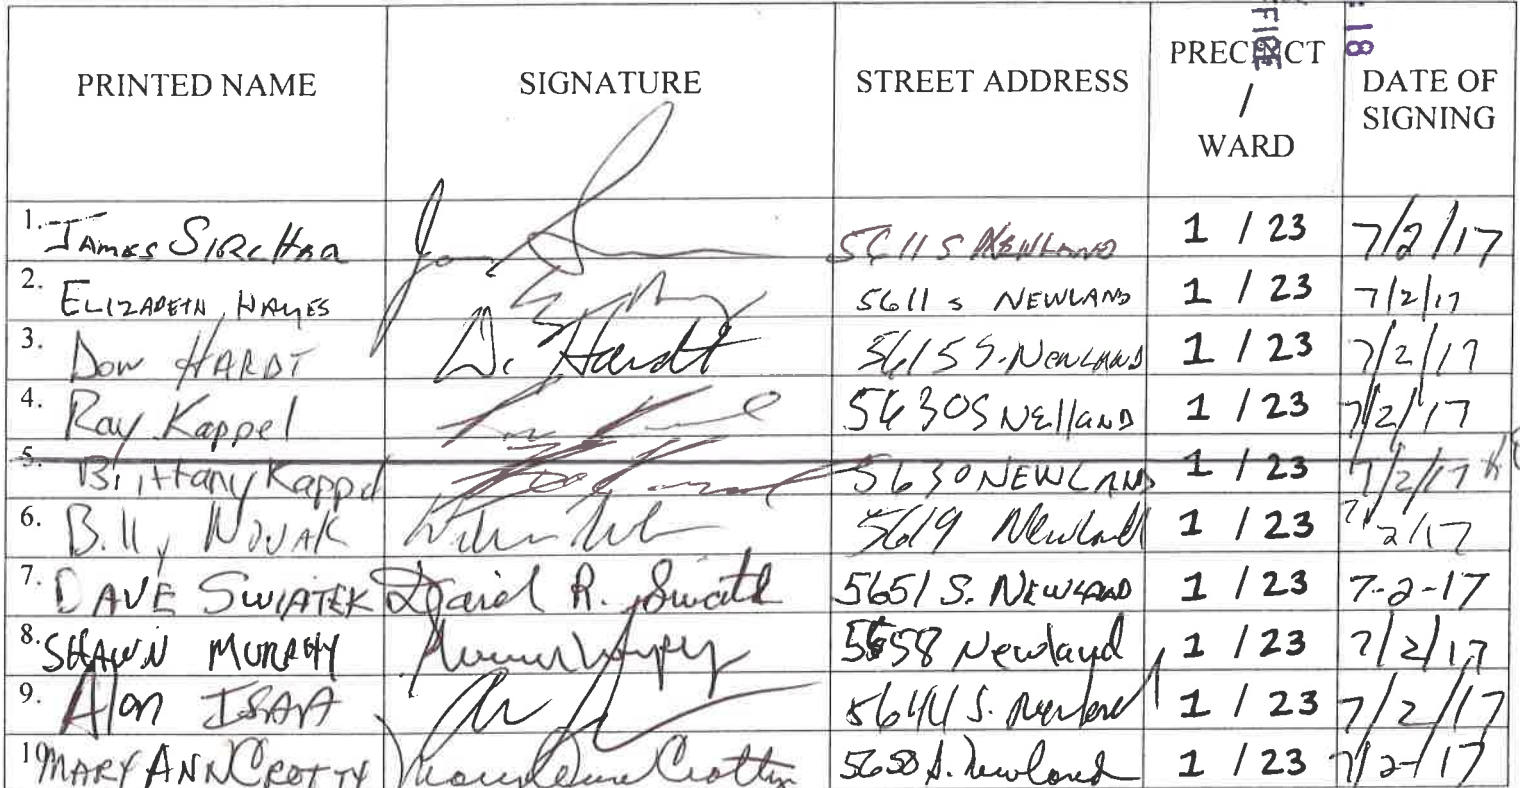 FICE
: 18
PRINTED NAME SIGNATURE STREET ADDRESS PRECINCT / WARD DATE OF SIGNING
1. James 5611 S Newland 1 / 23 7/2/17
2. Elizabeth Hayes 5611 s Newland 1 / 23 7/2/17
3. Don Hardt D. Hardt 5615 S. Newland 1 / 23 7/2/17
4. Ray Kappel 5630 S Nelland 1 / 23 7/2/17
5. Brittany Kappel 5630 Newland 1 / 23 7/2/17
6. Billy Novak 5619 Newland 1 / 23 7/2/17
7. Dave Swiatek David R. Swiatek 5651 S. Newland 1 / 23 7-2-17
8. Shawn Murphy 5658 Newland 1 / 23 7/2/17
9. Alan S. Newland 1 / 23 7/2/17
10. Mary Ann Crotty Mary Anne Crotty S. Newland 1 / 23 7/2/17